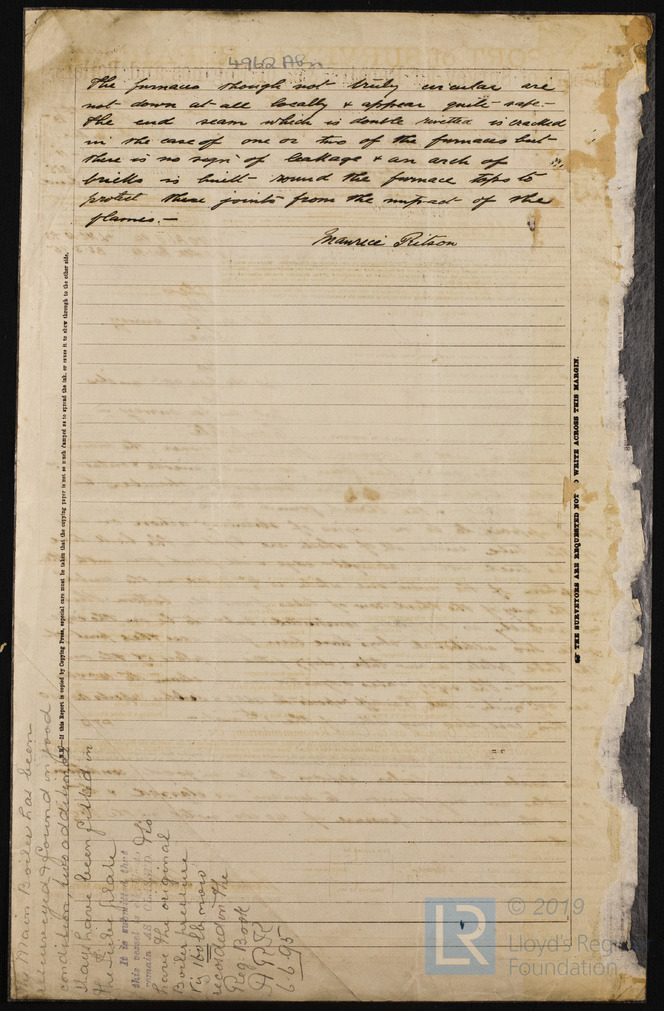 4962 A Bn
The furnaces though not truly circular are
not down at all locally & appear quite safe.—
The end seam which is double riveted is cracked
in the case of one or two of the furnaces but
there is no sign of leakage & an arch of
bricks is built round the furnace tops to
protect these joints from the impact of the
flames.—
Maurice Ritson
N.B.—If this Report is copied by Copying Press, especial care must be taken that the copying paper is not so much damped as to spread the ink, or cause it to show through to the other side.
THE SURVEYORS ARE REQUESTED NOT TO WRITE ACROSS THIS MARGIN.
Main Boiler has been
surveyed & found in good
condition, two additional
stays have been fitted in
the tube plate
It is submitted that
this vessel is
remain AS CLASSED. To
have the original
Boiler pressure
160 lb now
recorded in the
Reg. Book
6.6.95
LR
© 2019
Lloyd's Register
Foundation